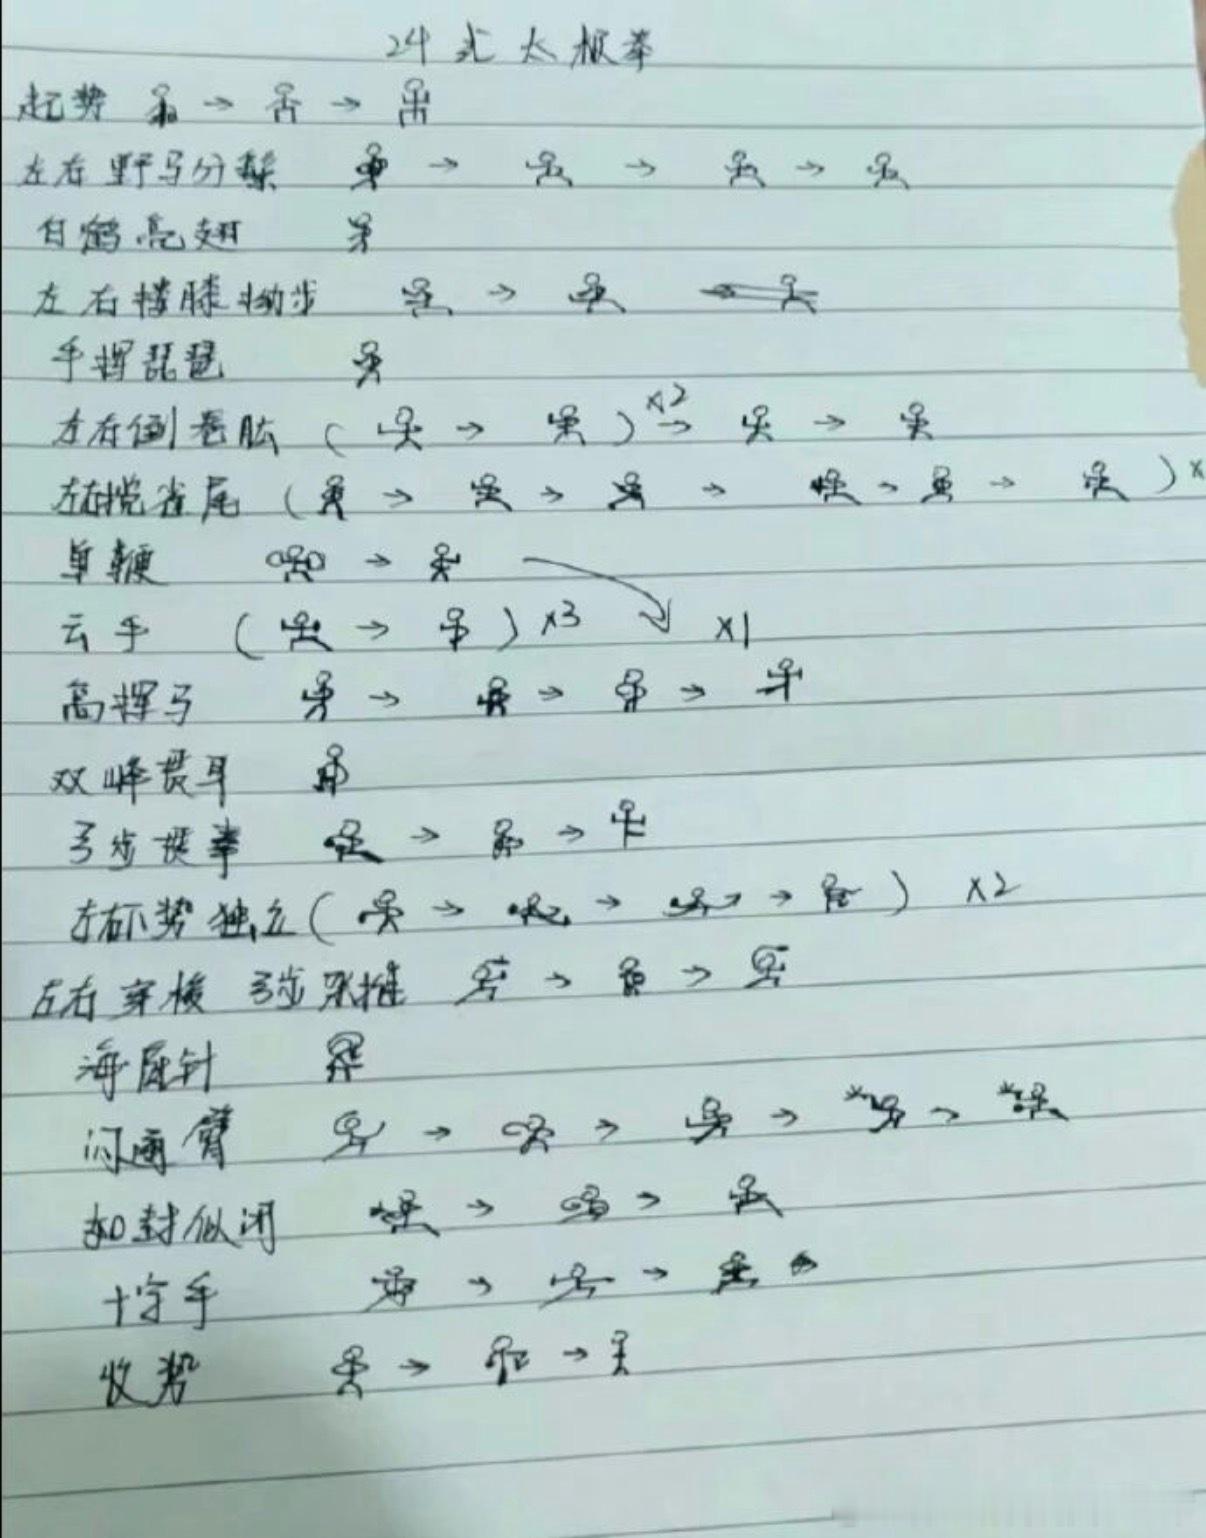 24式太极拳
起势 → →
左右野马分鬃 → → →
白鹤亮翅
左右搂膝拗步 →
手挥琵琶
左右倒卷肱 ( → )×2 → →
左右揽雀尾 ( → → → → → )×
单鞭 →
云手 ( → )×3 ×1
高探马 → → →
双峰贯耳
弓步 拳 → →
左右下势独立 ( → → → ) ×2
左右穿梭 弓步架推 → →
海底针
闪通臂 → → → →
如封似闭 → →
十字手 → →
收势 → →